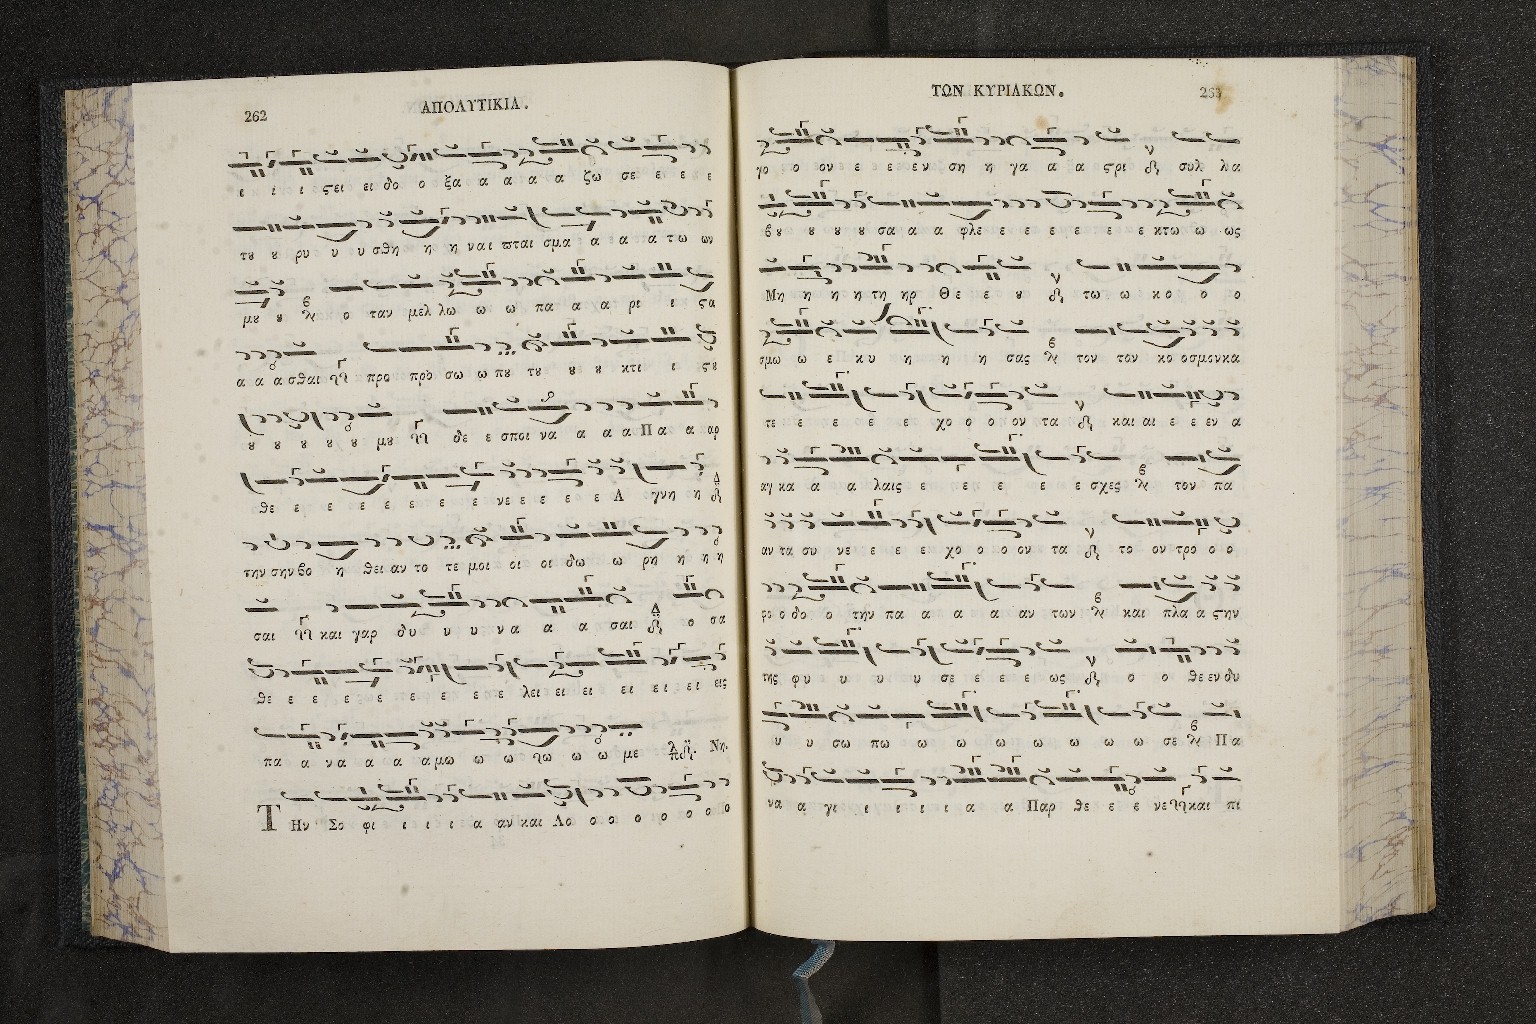 262
ΑΠΟΛΥΤΙΚΙΑ.
ι ι ι ςει ει δο ο ξα α α α α ζω σε ε ε ε
τȣ ȣ ρυ υ υ σθη η η ναι πται σμα α α α τω ων
μȣ ȣ ο ταν μελ λω ω ω πα α α ρι ι ςα
α α α σθαι προ προ σω ω πȣ τȣ ȣ ȣ κτι ι ςȣ
ȣ ȣ ȣ ȣ ȣ μȣ δε ε σποι να α α α Πα α αρ
θε ε ε ε ε ε ε ε νε ε ε ε ε Α γνη η
την σην βο η θει αν το τε μοι οι οι δω ω ρη η η η
σαι και γαρ δυ υ υ να α α σαι ο σα
θε ε ε ε ε ε ε ε ε ε λει ει ει ει ει ει εις
πα α να α α α μω ω ω ω ω με Νη.
Την Σο φι ι ι ι α αν και Λο ο ο ο ο ο ο ο
ΤΩΝ ΚΥΡΙΑΚΩΝ.
263
γο ο ον ε ε εν ση η γα α α ςρι συλ λα
βȣ ȣ ȣ ȣ σα α α φλε ε ε ε ε ε ε κτω ω ως
Μη η η η τη ηρ Θε ε ȣ τω ω κο ο ο
σμω ω ε κυ η η η σας τον τον κο οσμονκα
τε ε ε ε ε χο ο ο ον τα και αι ε ε εν α
αγκα α α λαις ε ε ε ε ε σχες τον πα
αν τα συ νε ε ε ε χο ο ο ον τα το ον τρο ο ο
ρο ο δο ο την πα α α α αν των και πλα α ςην
της φυ υ υ υ σε ε ε ε ως ο ο θε εν δυ
υ υ σω πω ω ω ω ω ω ω ω σε Πα
να α γι ι ι ι ι α α Παρ θε ε ε νε και πι